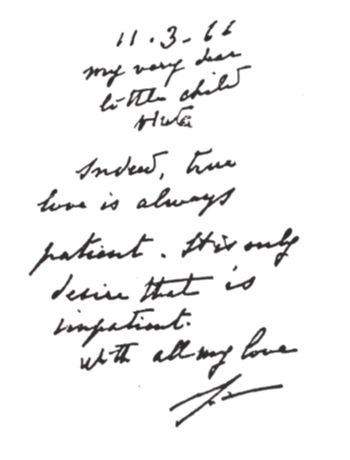 11.3-66
my very dear
little child
Indeed, true
love is always
patient. It is only
desire that is
impatient.
With all my love